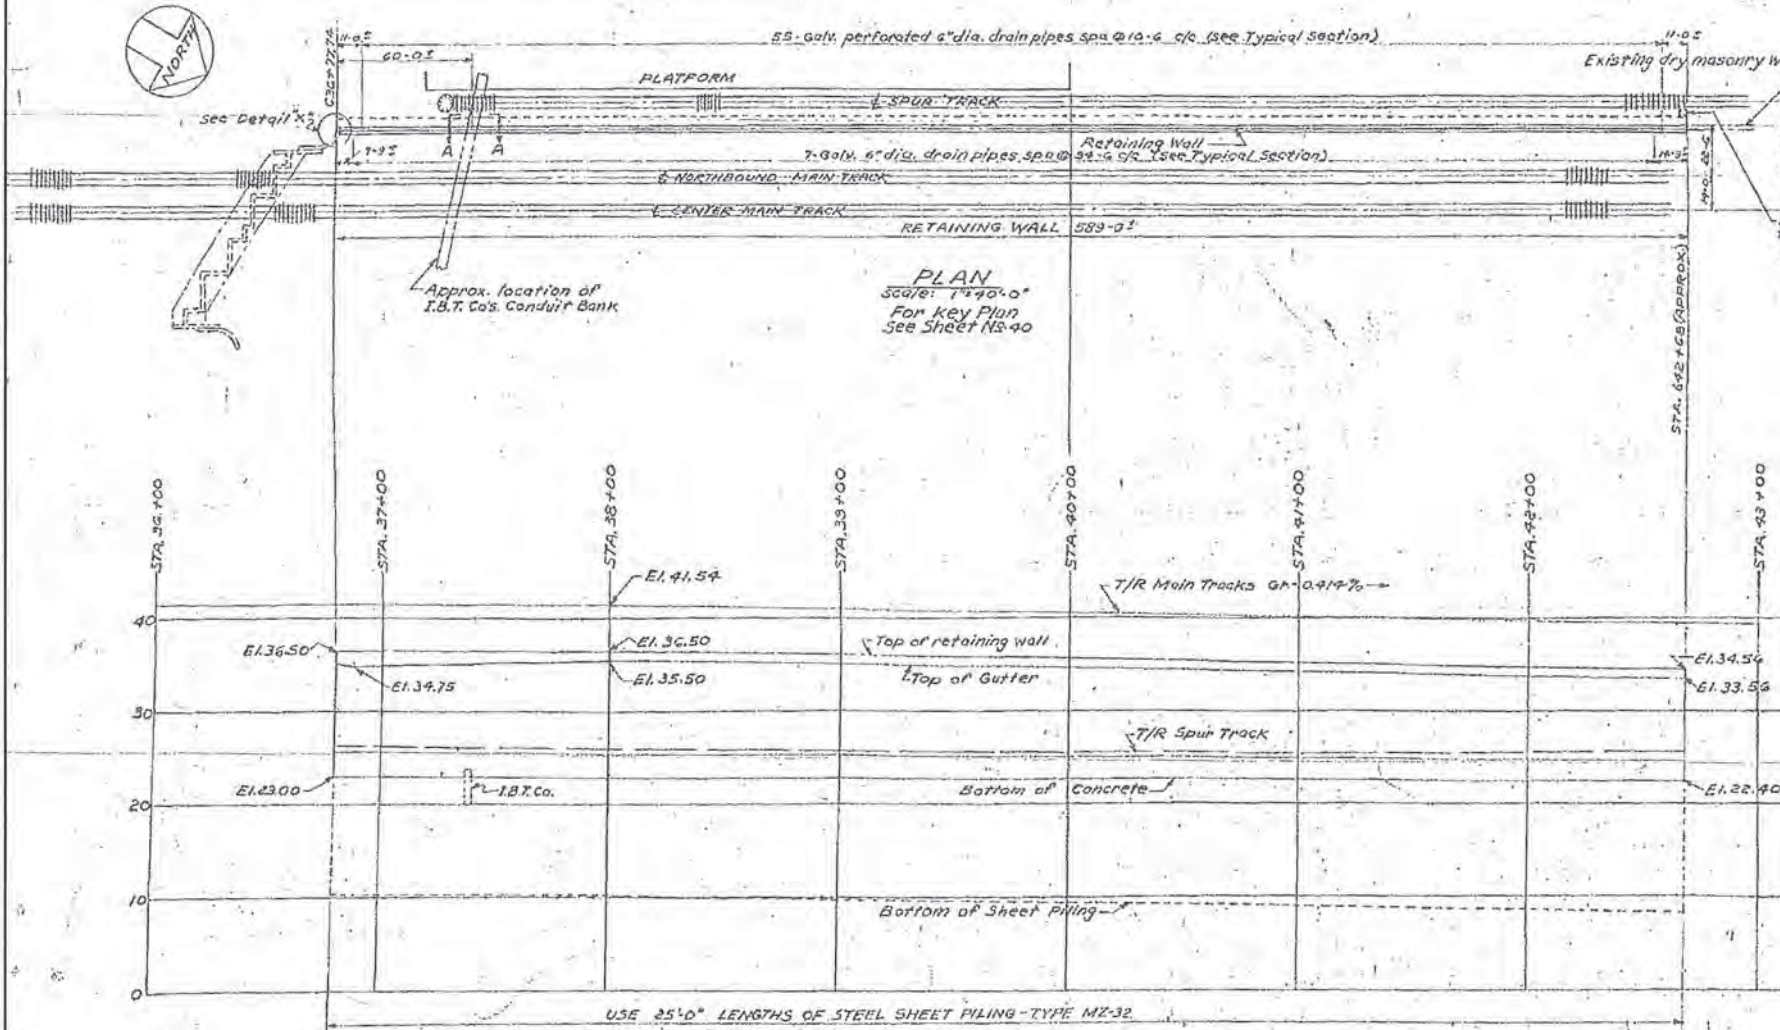 NORTH
11-0±
55-Galv. perforated 6"dia. drain pipes spa @ 10-6 c/c (see Typical Section)
11-0±
60-0±
Existing dry masonry W
PLATFORM
℄ SPUR TRACK
See Detail
A
A
Retaining Wall
7-9±
7-Galv. 6"dia. drain pipes spa @ 94-6 c/c (see Typical Section)
℄ NORTHBOUND MAIN TRACK
℄ CENTER MAIN TRACK
RETAINING WALL 589-0±
Approx. location of
I.B.T. Co's. Conduit Bank
PLAN
Scale: 1"=40'-0"
For Key Plan
See Sheet No. 40
STA. 642+68 (APPROX.)
STA. 36+00
STA. 37+00
STA. 38+00
STA. 39+00
STA. 40+00
STA. 41+00
STA. 42+00
STA. 43+00
El. 41.54
T/R Main Tracks Gr-0.414%
40
El. 36.50
El. 36.50
Top of retaining wall
El. 34.54
El. 34.75
El. 35.50
Top of Gutter
El. 33.56
30
T/R Spur Track
El. 23.00
I.B.T. Co.
Bottom of Concrete
El. 22.40
20
10
Bottom of Sheet Piling
0
USE 25'-0" LENGTHS OF STEEL SHEET PILING-TYPE MZ-32